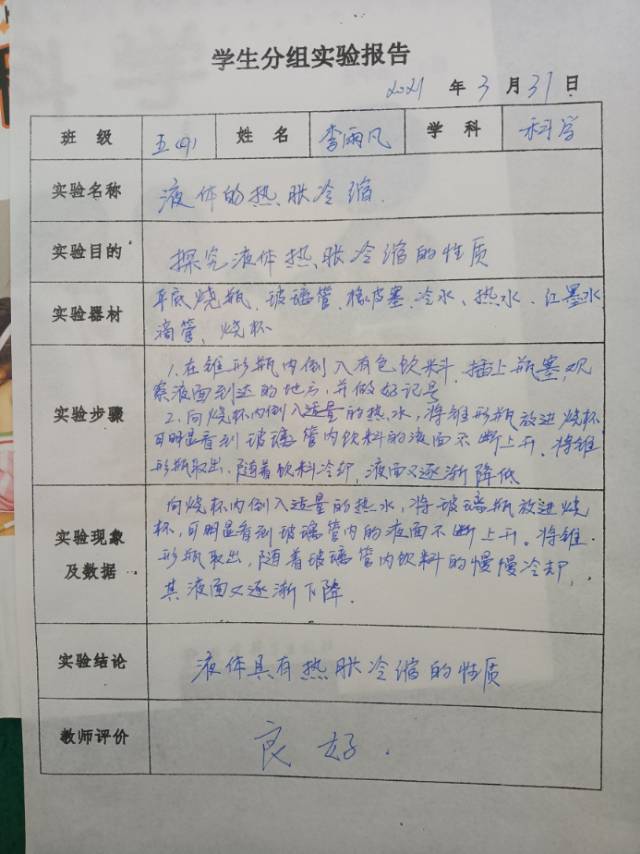 学生分组实验报告
2021 年 3 月 31 日
班 级 五(4) 姓 名 李雨凡 学 科 科学
实验名称 液体的热胀冷缩.
实验目的 探究液体热胀冷缩的性质
实验器材 平底烧瓶、玻璃管、橡皮塞、冷水、热水、红墨水
滴管、烧杯
实验步骤
1.在锥形瓶内倒入有色饮料,插上瓶塞,观
察液面到达的地方,并做好记号
2.向烧杯内倒入适量的热水,将锥形瓶放进烧杯
可明显看到玻璃管内饮料的液面不断上升.将锥
形瓶取出.随着饮料冷却,液面又逐渐降低
实验现象及数据
向烧杯内倒入适量的热水,将玻璃瓶放进烧
杯,可明显看到玻璃管内的液面不断上升.将锥
形瓶取出,随着玻璃管内饮料的慢慢冷却,
其液面又逐渐下降.
实验结论 液体具有热胀冷缩的性质
教师评价 良好.